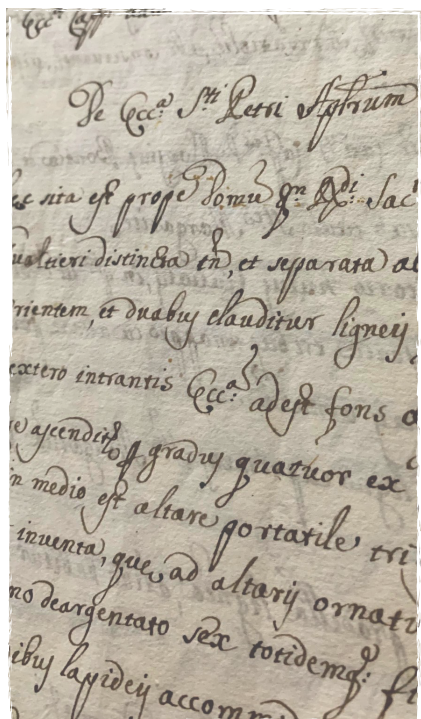 De Ecc.ª S.ti Petri Aplorum
sita est prope Domũ qn Rdi. Sac
ualtieri distincta tñ, et separata a
rientem, et duabus clauditur ligneis
extero intrantis Ecc.ª adest fons a
ascendit gradus quatuor ex
in medio est altare portatile tri
inventa, que ad altaris ornatu
no deargentato sex totidemq:
ibus lapideis accomm